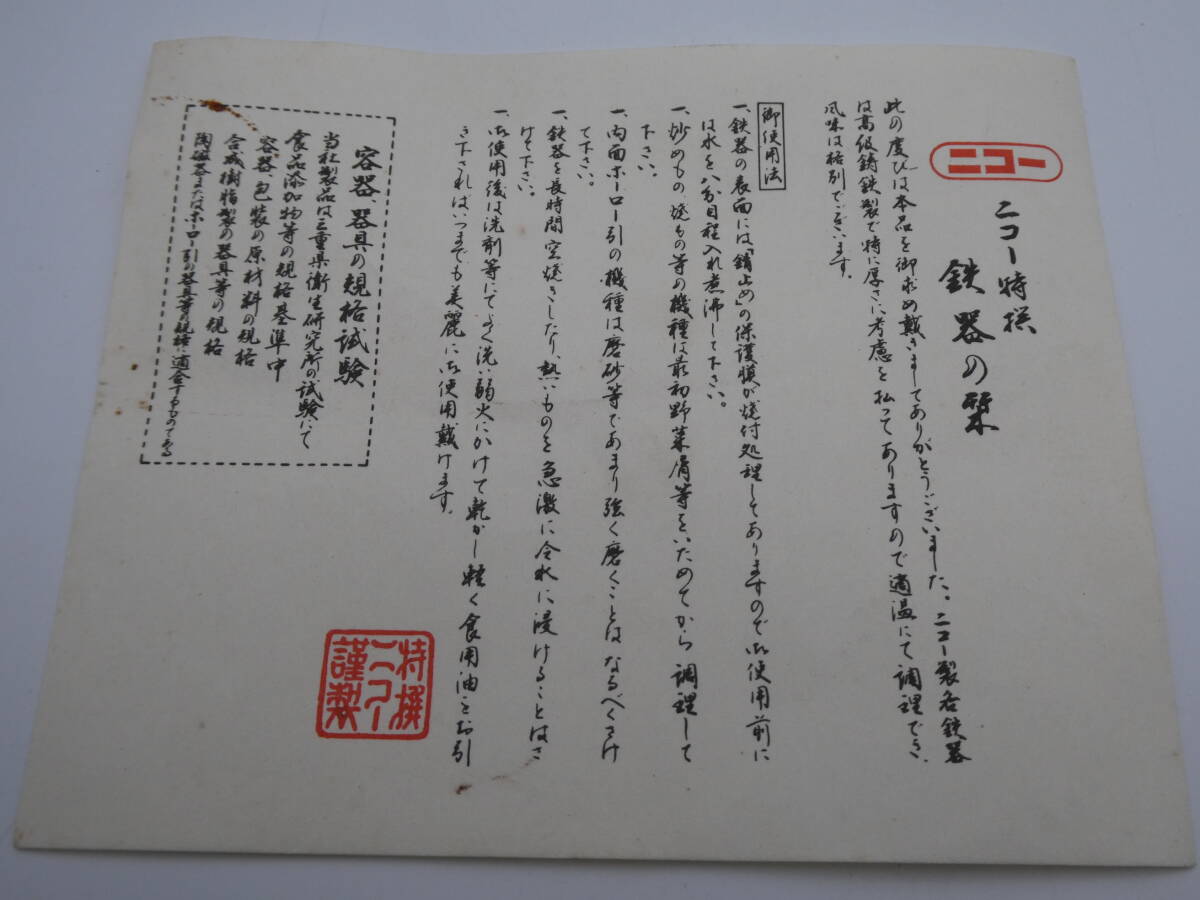 ニコー
ニコー特撰
鉄器の栞
此の度びは本品を御求め戴きましてありがとうございました。ニコー製各鉄器
は高級鋳鉄製で特に厚さに考慮を払ってありますので適温にて調理でき、
風味は格別でございます。
御使用法
一、鉄器の表面には「錆止め」の保護膜が焼付処理してありますので御使用前に
は水を八分目程入れ煮沸して下さい。
一、炒めもの焼もの等の機種は最初野菜屑等をいためてから調理して
下さい。
一、内面ホーロー引の機種は磨砂等であまり強く磨くことはなるべくさけ
て下さい。
一、鉄器を長時間空焼きしたり、熱いものを急激に冷水に浸けることはさ
けて下さい。
一、御使用後は洗剤等にてよく洗い弱火にかけて乾かし軽く食用油をお引
き下さればいつまでも美麗に御使用戴けます。
容器、器具の規格試験
当社製品は三重県衛生研究所の試験にて
食品添加物等の規格基準中
容器包装の原材料の規格
合成樹脂製の器具等の規格
陶磁器またはホーロー引の器具等の規格に適合するものである
特撰
ニコー
謹製